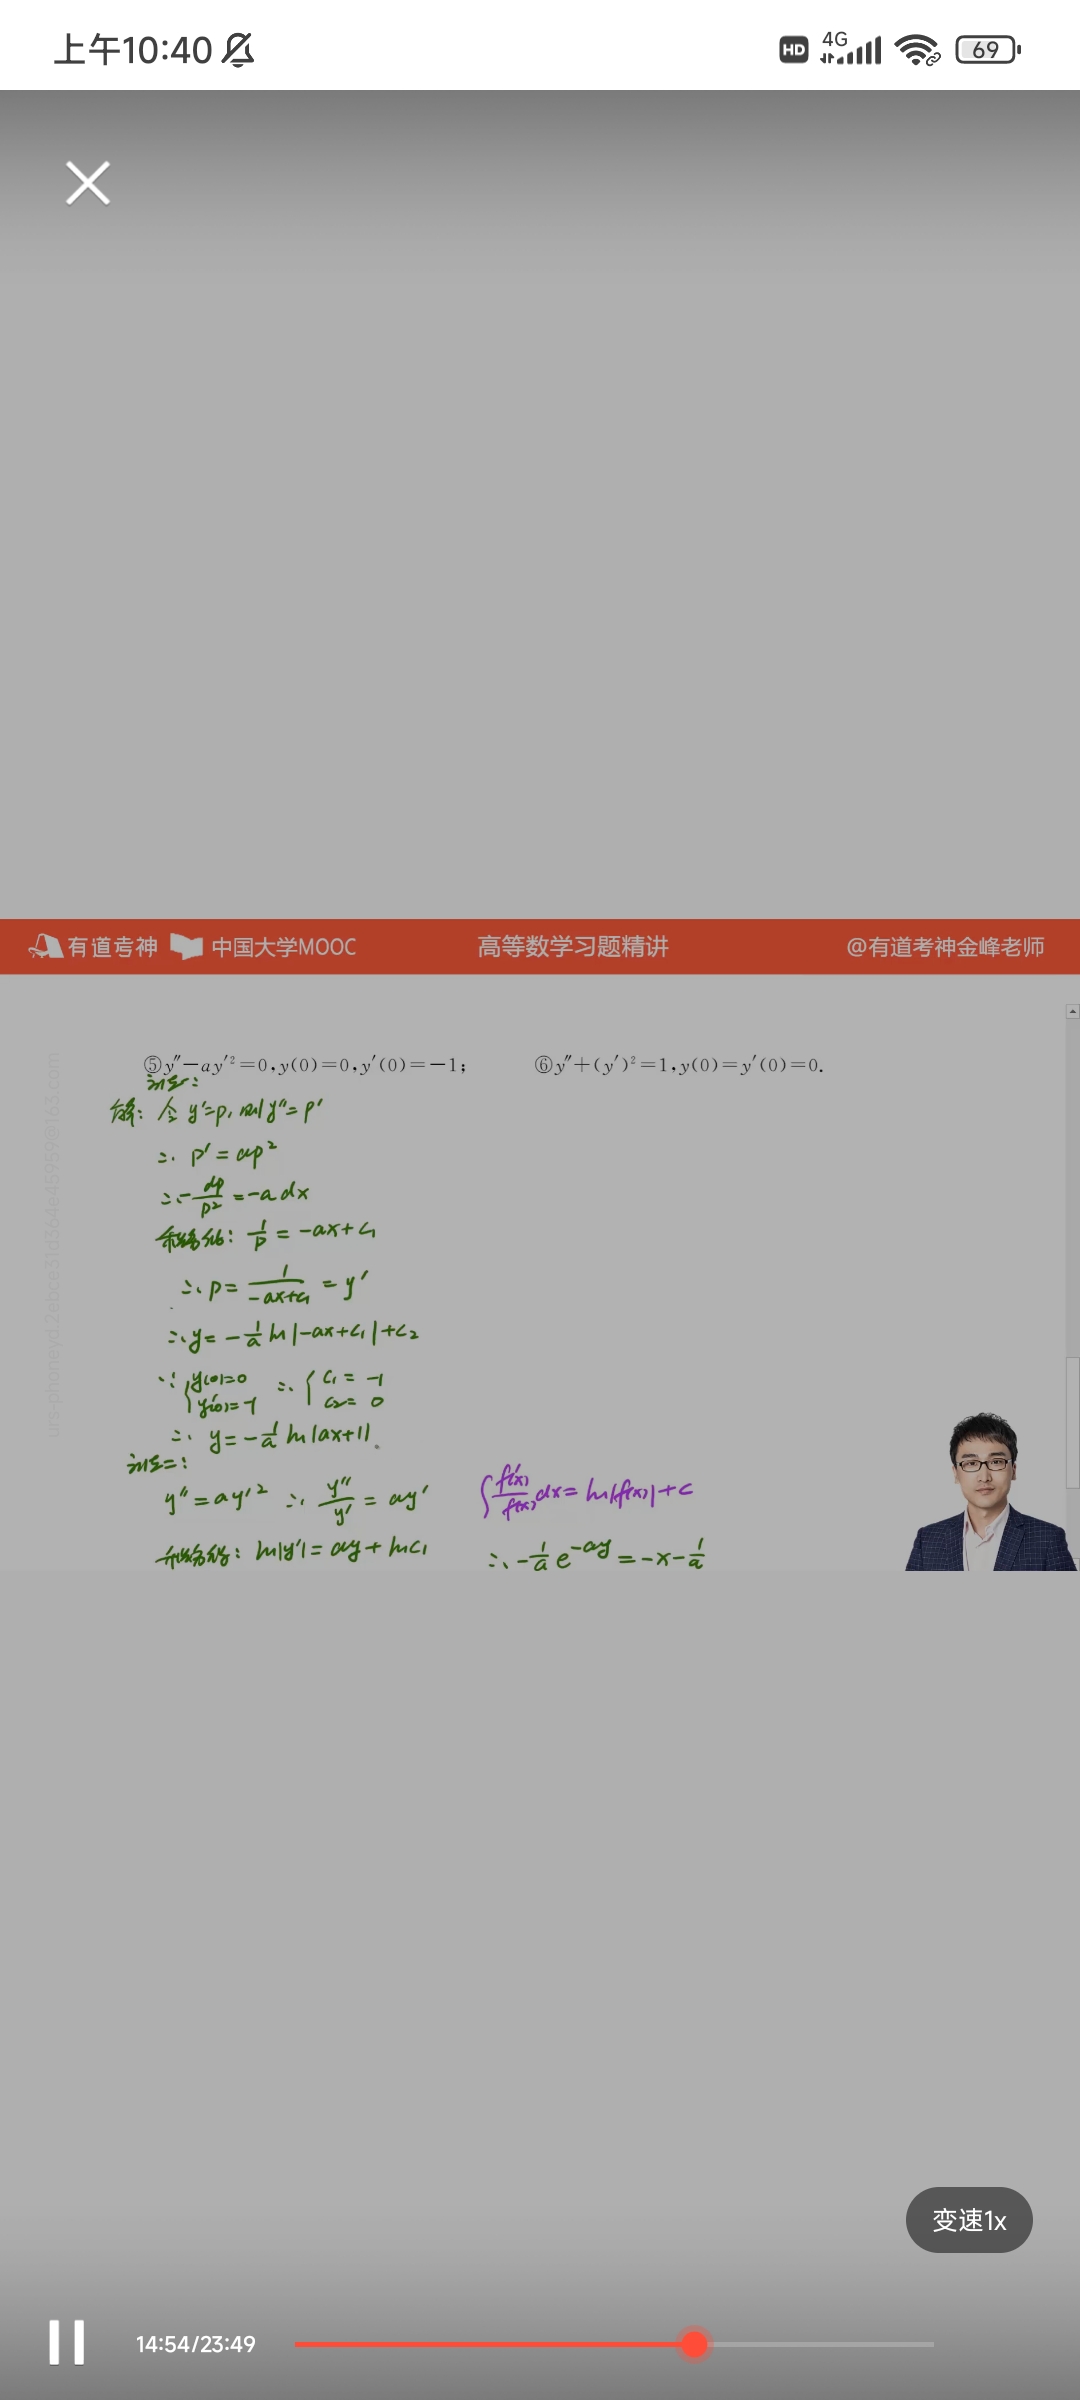 上午10:40
HD 4G 69
有道考神 中国大学MOOC 高等数学习题精讲 @有道考神金峰老师
⑤y″−ay′²=0,y(0)=0,y′(0)=−1; ⑥y″+(y′)²=1,y(0)=y′(0)=0.
法一:
解: 令 y′=p, 则 y″=p′
∴ p′=ap²
∴ -dp/p² = -a dx
两端积分: 1/p = -ax+c₁
∴ p = 1/(-ax+c₁) = y′
∴ y = -1/a ln|-ax+c₁|+c₂
∵ { y(0)=0 y′(0)=-1 ∴ { c₁=-1 c₂=0
∴ y=-1/a ln|ax+1|.
法二:
y″=ay′² ∴ y″/y′ = ay′ ∫ f′(x)/f(x) dx = ln|f(x)|+c
ln|y′|=ay+lnc₁ ∴ -1/a e^{-ay} = -x-1/a
变速1x
14:54/23:49